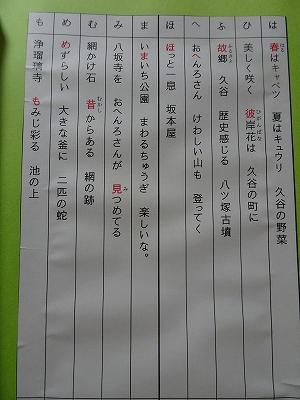 は 春はキャベツ 夏はキュウリ 久谷の野菜
ひ 美しく咲く 彼岸花は 久谷の町に
ふ 故郷 久谷 歴史感じる 八ツ塚古墳
へ おへんろさん けわしい山も 登ってく
ほ ほっと一息 坂本屋
ま いまいち公園 まわるちゅうぎ 楽しいな。
み 八坂寺を おへんろさんが 見つめてる
む 網かけ石 昔からある 網の跡
め めずらしい 大きな釜に 二匹の蛇
も 浄瑠璃寺 もみじ彩る 池の上